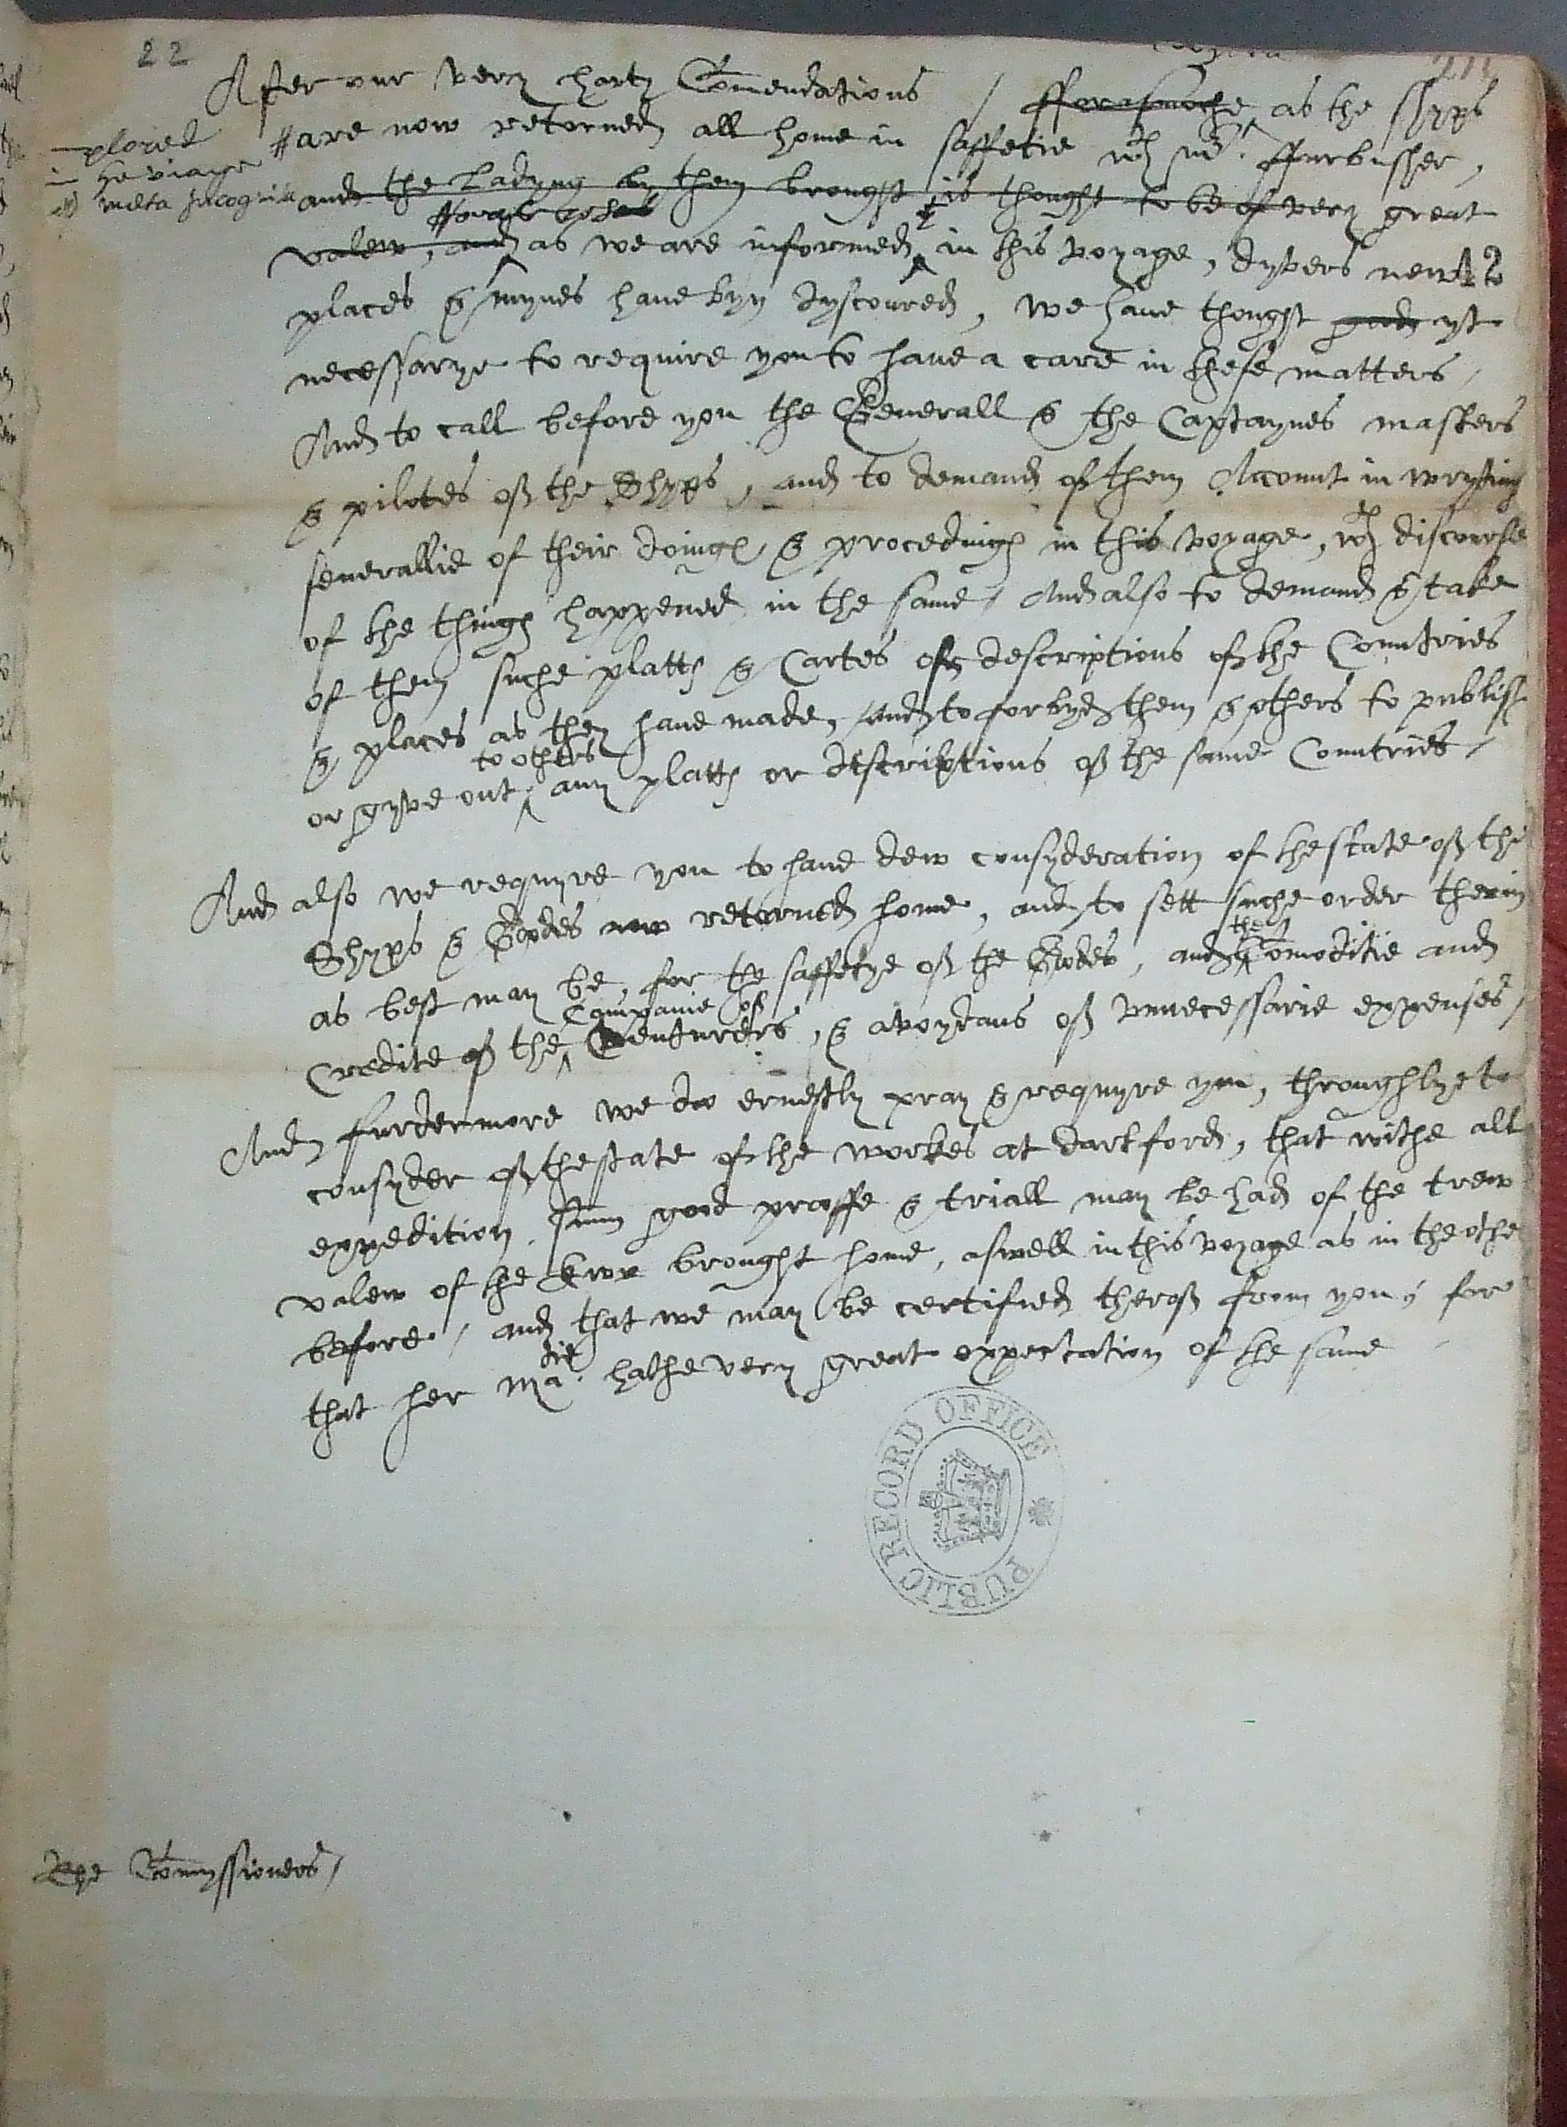 22
After our very harty Comendations / fforasmoche as the shyps
ployed
the viage
meta Incognita
are now retorned all home in saffetie wth mr. ffurbusher,
and the Ladyng by them brought is thought to be of very great
valew, and as we are informed in this voyage, dyvers new
places & mynes have byn dyscovred, we have thought good yt
necessarye to require you to have a care in these matters /
And to call before you the Generall & the Captaynes masters
& pilotes of the Shyps, and to demand of them Account in wryting
severallie of their doings & procedings in this voyage, wth discourse
of the things happened in the same / And also to demand & take
of them suche platts & Cartes of descriptions of the Countries
& places as they have made, And to forbyd them & others to publish
to others
or gyve out any platts or descriptions of the same Countries /
And also we requyre you to have dew consyderation of the state of the
Shyps & Goodes now retorned home, and to sett suche order therin
the
as best may be, for the saffetye of the Goodes, and Comoditie and
Companie of
Credite of the Venturers, & avoydans of unnecessarie expenses /
And furdermore we do ernestly pray & requyre you, throughlye to
consyder of the state of the workes at dartford, that withe all
expedition, sum good prooffe & triall may be had of the trew
valew of the Ewr brought home, aswell in this voyage as in the othe
before / and that we may be certified therof from you, for
that her Matie hathe very great expectation of the same
PUBLIC RECORD OFFICE
The Comyssioners /